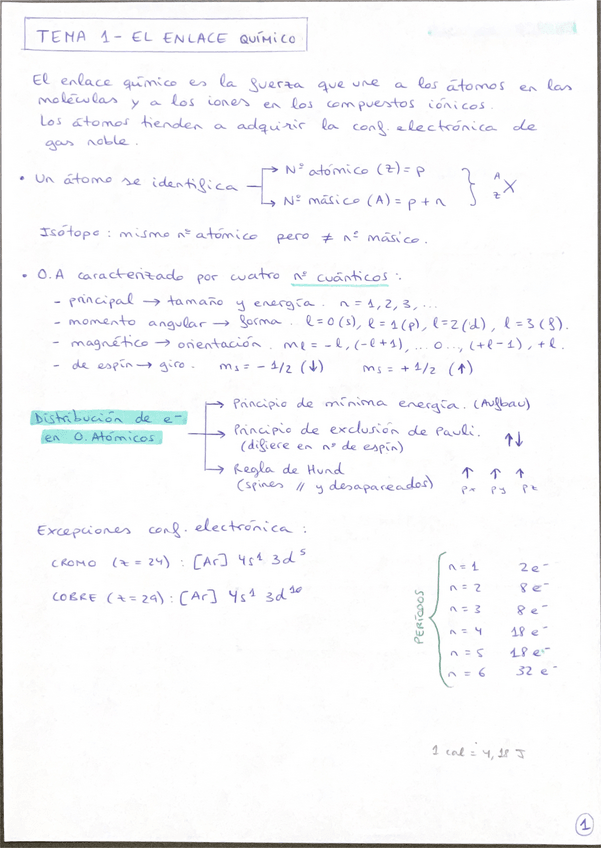 TEMA 1 - EL ENLACE QUÍMICO
El enlace químico es la fuerza que une a los átomos en las
moléculas y a los iones en los compuestos iónicos.
Los átomos tienden a adquirir la conf. electrónica de
gas noble.
• Un átomo se identifica → Nº atómico (Z) = p
→ Nº másico (A) = p + n } A Z X
Isótopo : mismo nº atómico pero ≠ nº másico.
• O.A caracterizado por cuatro nº cuánticos :
- principal → tamaño y energía. n = 1, 2, 3, ...
- momento angular → forma. l = 0 (s), l = 1 (p), l = 2 (d), l = 3 (f).
- magnético → orientación. ml = - l, (-l+1), ... 0 ..., (+l-1), +l.
- de espín → giro. ms = - 1/2 (↓) ms = + 1/2 (↑)
Distribución de e-
en O. Atómicos
→ Principio de mínima energía. (Aufbau)
→ Principio de exclusión de Pauli. ↑↓
(difiere en nº de espín)
→ Regla de Hund ↑ ↑ ↑
(spines // y desapareados) px py pz
Excepciones conf. electrónica :
CROMO (z = 24) : [Ar] 4s¹ 3d⁵
COBRE (z = 29) : [Ar] 4s¹ 3d¹⁰
PERÍODOS
n = 1 2 e-
n = 2 8 e-
n = 3 8 e-
n = 4 18 e-
n = 5 18 e-
n = 6 32 e-
1 cal = 4,18 J
1